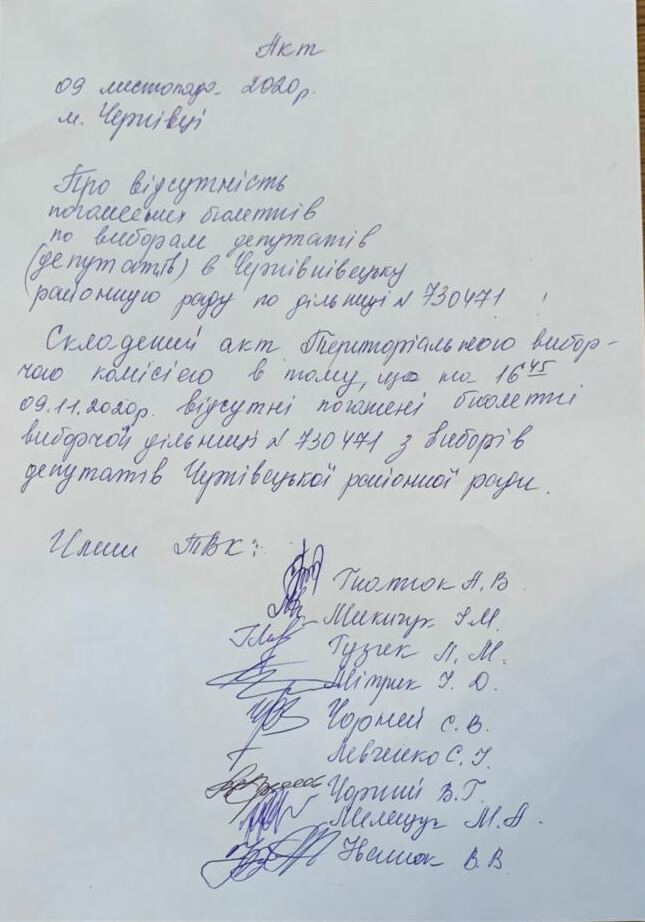 Акт
09 листопада 2020р.
м. Чернівці
Про відсутність
погашених бюлетнів
по виборам депутатів
(депутатів) в Чернівнівецьку
районную раду по дільниці № 730471
Складений акт Територіальною вибор-
чою комісією в тому, що на 16 45
09.11.2020р. відсутні погашені бюлетні
виборчой дільниці № 730471 з виборів
депутатів Чернівецької районної ради.
Члени ТВК:
А.В.
Микичук І.М.
Гузчек Л.М.
Мітрик І.О.
Чорней С.В.
Левченко С.І.
Чорний В.Г.
Мелещук М.А.
В.В.